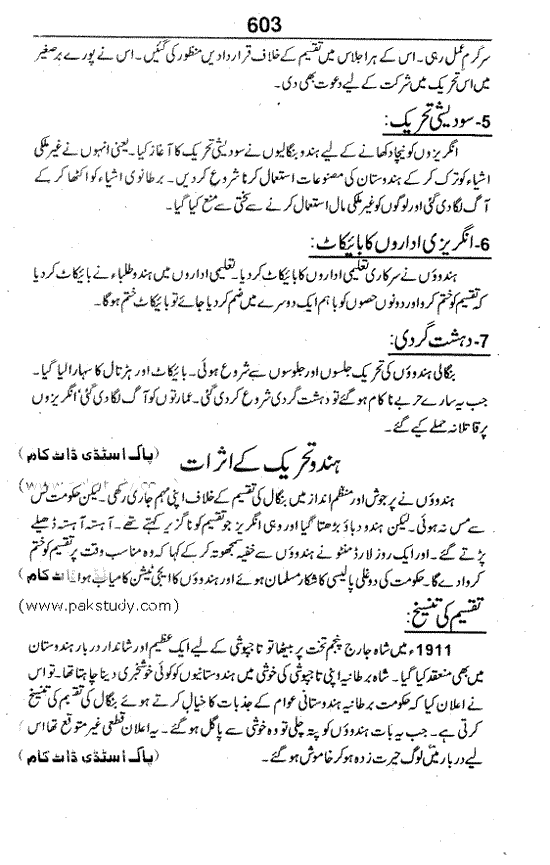 603
سرگرم عمل رہی۔ اس کے ہر اجلاس میں تقسیم کے خلاف قراردادیں منظور کی گئیں۔ اس نے پورے برصغیر
میں اس تحریک میں شرکت کے لیے دعوت بھی دی۔
5- سودیشی تحریک:
انگریزوں کو نیچا دکھانے کے لیے ہندو بنگالیوں نے سودیشی تحریک کا آغاز کیا۔ یعنی انہوں نے غیر ملکی
اشیاء کو ترک کر کے ہندوستان کی مصنوعات استعمال کرنا شروع کر دیں۔ برطانوی اشیاء کو اکٹھا کر کے
آگ لگا دی گئی اور لوگوں کو غیر ملکی مال استعمال کرنے سے سختی سے منع کیا گیا۔
6- انگریزی اداروں کا بائیکاٹ:
ہندوؤں نے سرکاری تعلیمی اداروں کا بائیکاٹ کر دیا۔ تعلیمی اداروں میں ہندو طلباء نے بائیکاٹ کر دیا
کہ تقسیم کو ختم کرو اور دونوں حصوں کو باہم ایک دوسرے میں ضم کر دیا جائے تو بائیکاٹ ختم ہو گا۔
7- دہشت گردی:
بنگالی ہندوؤں کی تحریک جلسوں اور جلوسوں سے شروع ہوئی۔ بائیکاٹ اور ہڑتال کا سہارا لیا گیا۔
جب یہ سارے حربے ناکام ہو گئے تو دہشت گردی شروع کر دی گئی۔ عمارتوں کو آگ لگا دی گئی‘ انگریزوں
پر قاتلانہ حملے کیے گئے۔
ہندو تحریک کے اثرات (پاک اسٹڈی ڈاٹ کام)
ہندوؤں نے پرجوش اور منظم انداز میں بنگال کی تقسیم کے خلاف اپنی مہم جاری رکھی۔ لیکن حکومت ٹس
سے مس نہ ہوئی۔ لیکن ہندو دباؤ بڑھتا گیا اور وہی انگریز جو تقسیم کو ناگزیر کہتے تھے۔ آہستہ آہستہ ڈھیلے
پڑتے گئے۔ اور ایک روز لارڈ منٹو نے ہندوؤں سے خفیہ سمجھوتہ کر کے کہا کہ وہ مناسب وقت پر تقسیم کو ختم
کروا دے گا۔ حکومت کی دوغلی پالیسی کا شکار مسلمان ہوئے اور ہندوؤں کا ایجی ٹیشن کامیاب ہوا
(www.pakstudy.com)
تقسیم کی تنسیخ:
1911ء میں شاہ جارج پنجم تخت پر بیٹھا تو تاجپوشی کے لیے ایک عظیم اور شاندار دربار ہندوستان
میں بھی منعقد کیا گیا۔ شاہ برطانیہ اپنی تاجپوشی کی خوشی میں ہندوستانیوں کو کوئی خوشخبری دینا چاہتا تھا۔ تو اس
نے اعلان کیا کہ حکومت برطانیہ ہندوستانی عوام کے جذبات کا خیال کرتے ہوئے بنگال کی تقسیم کی تنسیخ
کرتی ہے۔ جب یہ بات ہندوؤں کو پتہ چلی تو وہ خوشی سے پاگل ہو گئے۔ یہ اعلان قطعی غیر متوقع تھا اس
لیے دربار میں لوگ حیرت زدہ ہو کر خاموش ہو گئے۔ (پاک اسٹڈی ڈاٹ کام)